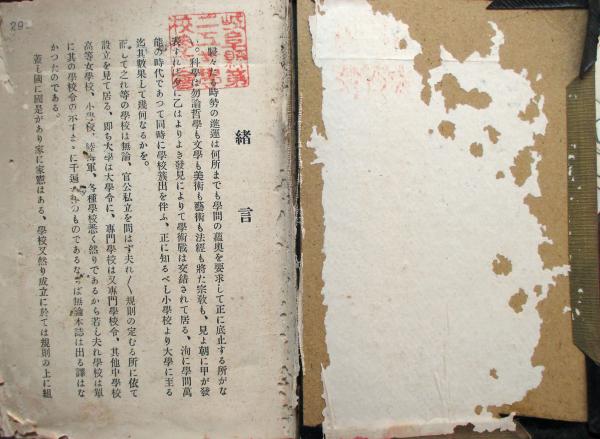 緒言
駸々たる時勢の進運は何所までも學問の蘊奥を要求して正に底止する所がな
い。科學は勿論哲學も文學も美術も藝術も法經も將た宗敎も、見よ朝に甲が發
表すれば夕に乙はよりよき發見によりて學術戰は交緒されて居る、洵に學問萬
能の時代であつて同時に學校簇出を伴ふ、正に知るべし小學校より大學に至る
迄其數果して幾何なるかを。
而して之れ等の學校は無論、官公私立を問はず夫れ〳〵規則の定むる所に依て
設立を見て居る、即ち大學は大學令に、專門學校は又專門學校令、其他中學校
高等女學校、小學校、陸海軍、各種學校悉く然りであるから若し夫れ學校は單
に其の學校令の示すまゝに千遍のものであるならば無論本誌は出る譯はな
かつたのである。
蓋し國に國是があり家に家憲はある、學校又然り成立に於ては規則の上に組
岐阜縣第
校
29